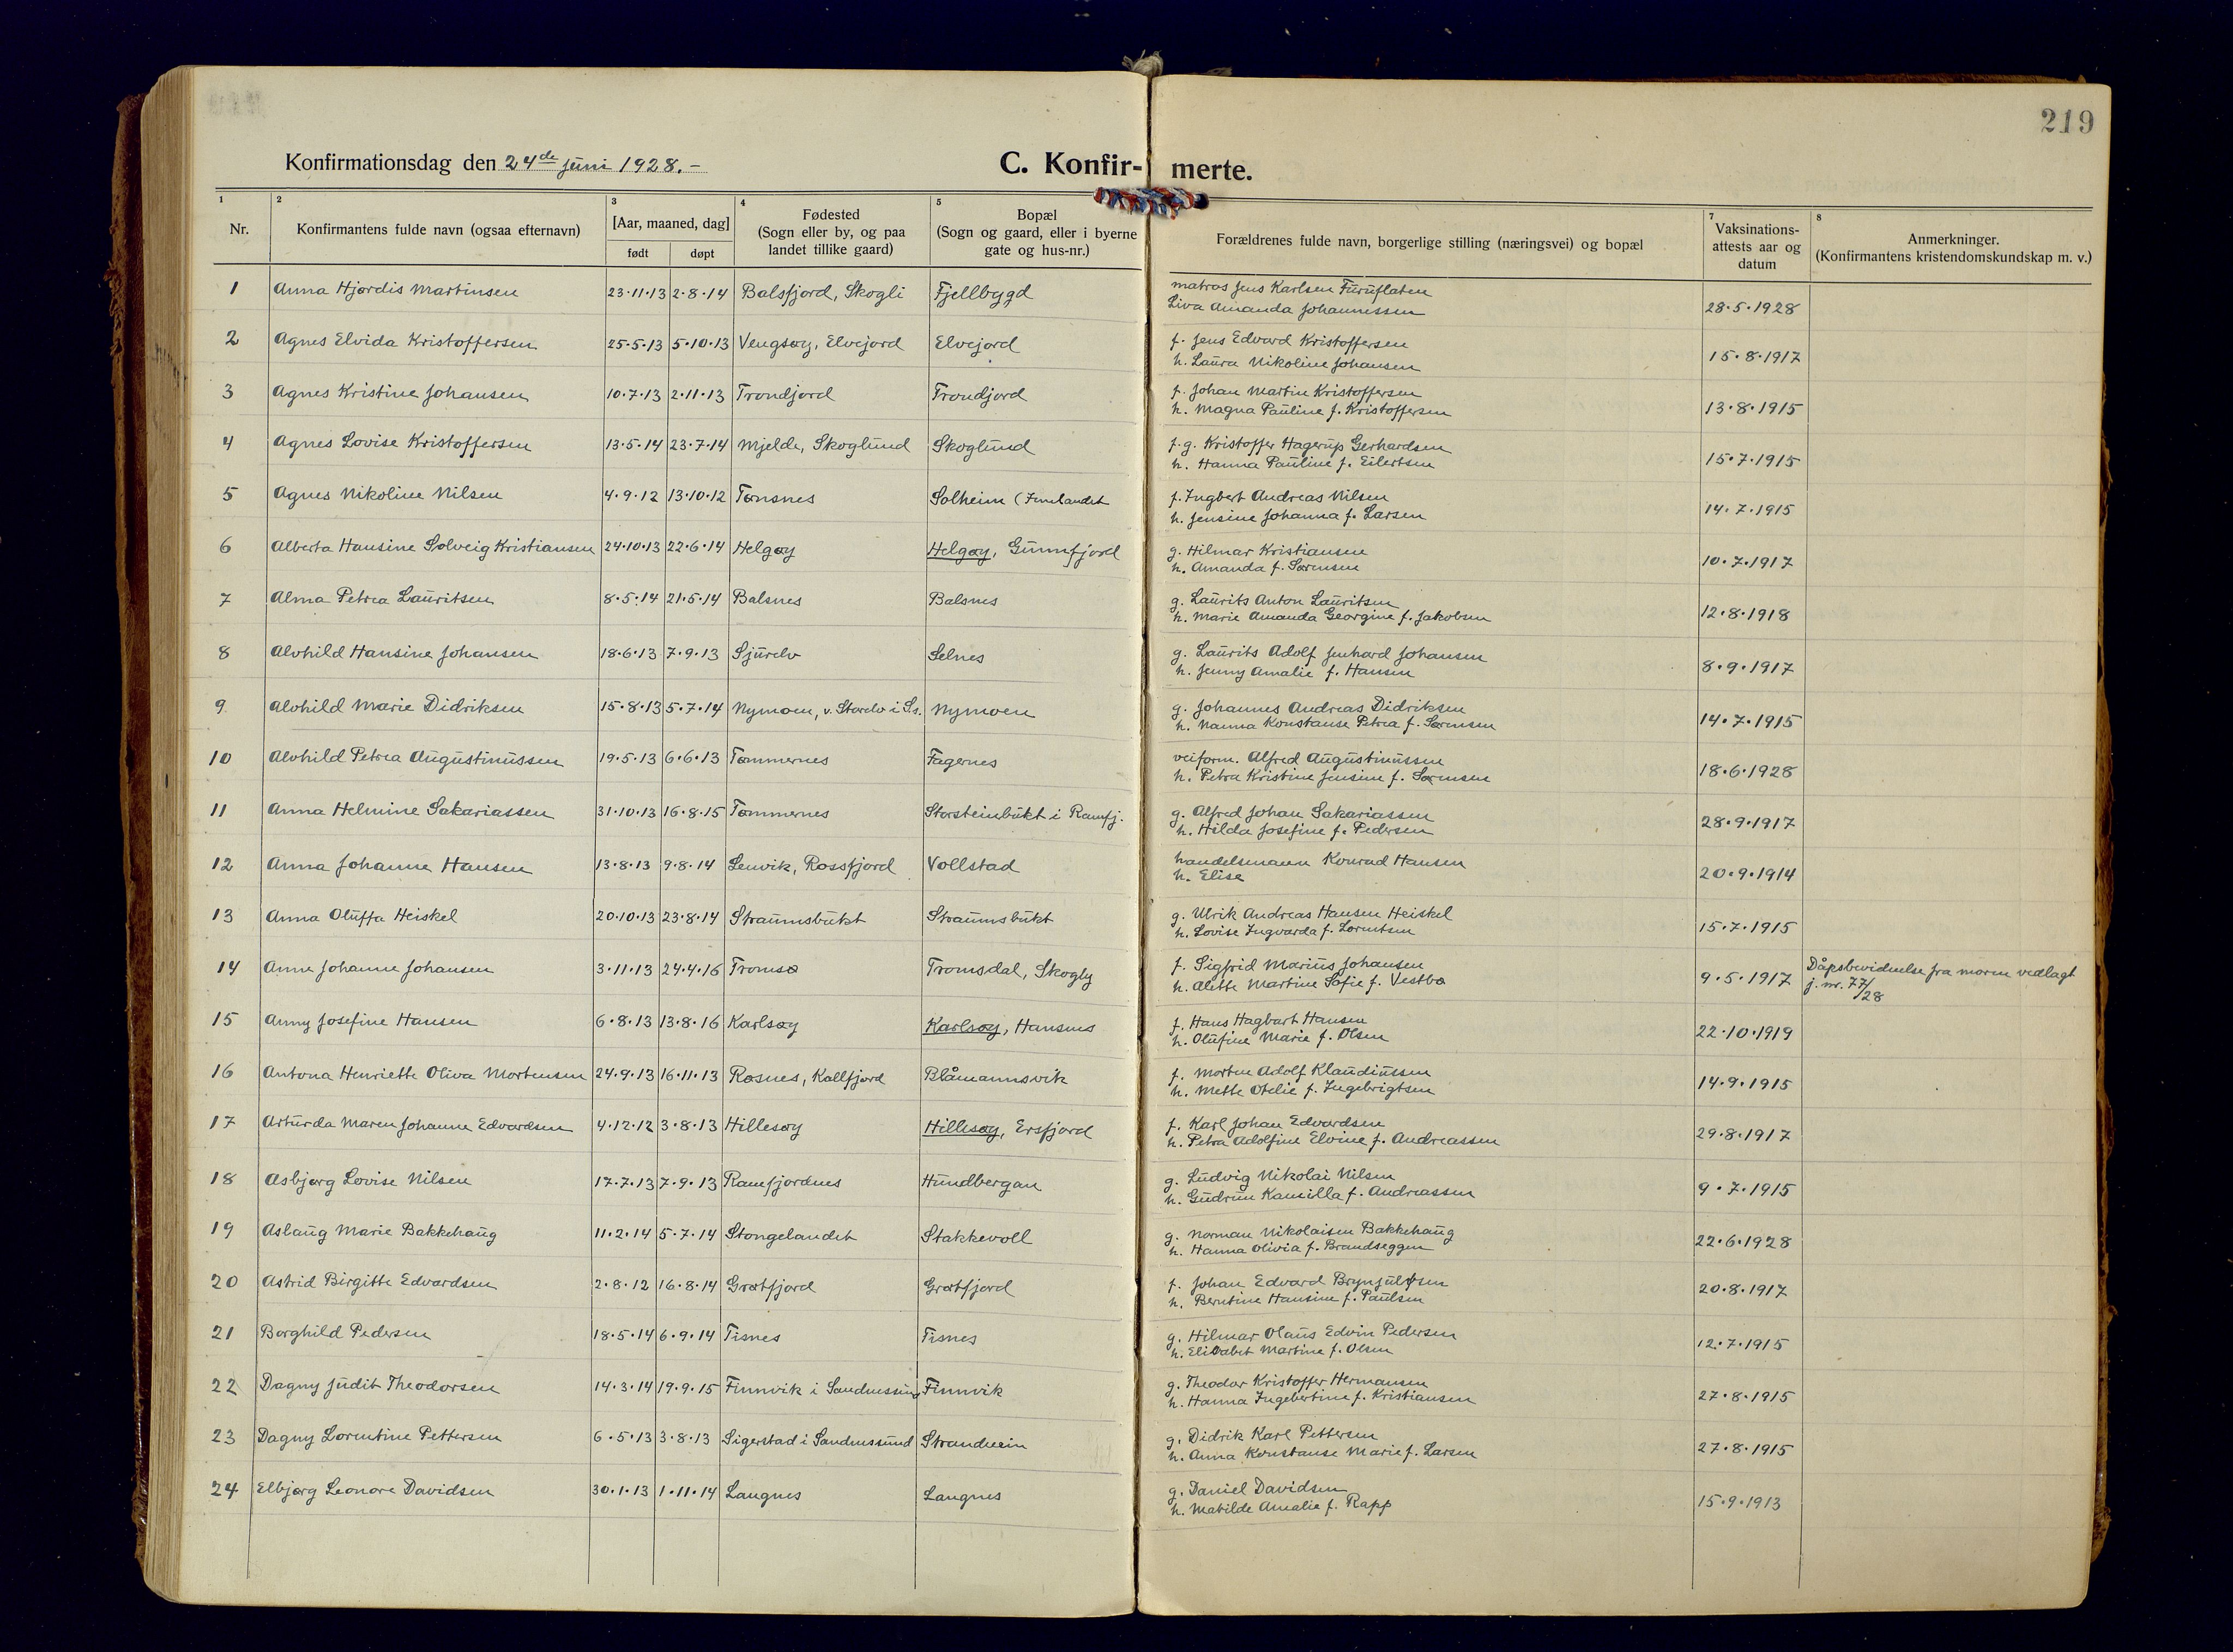 219
Konfirmationsdag den 24de juni 1928.-
C. Konfir- merte.
1 2 3 4 5 7 8
Nr.
Konfirmantens fulde navn (ogsaa efternavn)
[Aar, maaned, dag]
født døpt
Fødested
(Sogn eller by, og paa
landet tillike gaard)
Bopæl
(Sogn og gaard, eller i byerne
gate og hus-nr.)
Forældrenes fulde navn, borgerlige stilling (næringsvei) og bopæl
Vaksinations-
attests aar og
datum
Anmerkninger.
(Konfirmantens kristendomskundskap m. v.)
1 Anna Hjørdis Martinsen 23·11·13 2·8·14 Balsfjord, Skogli Fjellbygd matros Jens Karlsen Furuflaten
Liva Amanda Johannessen 28·5·1928
2 Agnes Elvida Kristoffersen 25·5·13 5·10·13 Vengsøy, Elvejord Elvejord f. Jens Edvard Kristoffersen
h. Laura Nikoline Johansen 15·8·1917
3 Agnes Kristine Johansen 10·7·13 2·11·13 Trondjord Trondjord f. Johan Martin Kristoffersen
h. Magna Pauline f. Kristoffersen 13·8·1915
4 Agnes Lovise Kristoffersen 13·5·14 23·7·14 Mjelde, Skoglund Skoglund f.g. Kristoffer Hagerup Gerhardsen
h. Hanna Pauline f. Eilertsen 15·7·1915
5 Agnes Nikoline Nilsen 4·9·12 13·10·12 Tønsnes Solheim (Innlandet f. Ingbert Andreas Nilsen
h. Jensine Johanna f. Larsen 14·7·1915
6 Alberta Hansine Solveig Kristiansen 24·10·13 22·6·14 Helgøy Helgøy, Gunnfjord g. Hilmar Kristiansen
h. Amanda f. Sørensen 10·7·1917
7 Alma Petrea Lauritsen 8·5·14 21·5·14 Balsnes Balsnes g. Laurits Anton Lauritsen
h. Marie Amanda Georgine f. Jakobsen 12·8·1918
8 Alvhild Hansine Johansen 18·6·13 7·9·13 Sjurelv Selnes g. Laurits Adolf Jenhard Johansen
h. Jenny Amalie f. Hansen 8·9·1917
9 Alvhild Marie Didriksen 15·8·13 5·7·14 Nymoen, v. Storelv i S.s. Nymoen g. Johannes Andreas Didriksen
h. Nanna Konstanse Petrea f. Sørensen 14·7·1915
10 Alvhild Petrea Augustinussen 19·5·13 6·6·13 Tømmernes Fagernes veiform. Alfred Augustinussen
h. Petra Kristine Jensine f. Sørensen 18·6·1928
11 Anna Helmine Sakariassen 31·10·13 16·8·15 Tømmernes Storsteinbukt i Ramfj. g. Alfred Johan Sakariassen
h. Hilda Josefine f. Pedersen 28·9·1917
12 Anna Johanne Hansen 13·8·13 9·8·14 Lenvik, Rossfjord Vollstad handelsmann Konrad Hansen
h. Elise 20·9·1914
13 Anna Oluffa Heiskel 20·10·13 23·8·14 Straumsbukt Straumsbukt g. Ulrik Andreas Hansen Heiskel
h. Lovise Ingvarda f. Lorentsen 15·7·1915
14 Anne Johanne Johansen 3·11·13 24·4·16 Tromsø Tromsdal, Skogly f. Sigfrid Marius Johansen
h. Alette Martine Sofie f. Vestbø 9·5·1917 Dåpsbevidnelse fra moren vedlagt
j. nr. 77/28
15 Anny Josefine Hansen 6·8·13 13·8·16 Karlsøy Karlsøy, Hansnes f. Hans Hagbart Hansen
h. Olufine Marie f. Olsen 22·10·1919
16 Antona Henriette Oliva Mortensen 24·9·13 16·11·13 Røsnes, Kallfjord Blåmannsvik f. Morten Adolf Klaudiussen
h. Mette Otelie f. Ingebrigtsen 14·9·1915
17 Arturda Maren Johanne Edvardsen 4·12·12 3·8·13 Hillesøy Hillesøy, Ersfjord f. Karl Johan Edvardsen
h. Petra Adolfine Elvine f. Andreassen 29·8·1917
18 Asbjørg Lovise Nilsen 17·7·13 7·9·13 Ramfjordnes Hundbergan g. Ludvig Nikolai Nilsen
h. Gudrun Kamilla f. Andreassen 9·7·1915
19 Aslaug Marie Bakkehaug 11·2·14 5·7·14 Stongelandet Stakkevoll g. Norman Nikolaisen Bakkehaug
h. Hanna Olivia f. Brandseggen 22·6·1928
20 Astrid Birgitte Edvardsen 2·8·12 16·8·14 Grøtfjord Grøtfjord f. Johan Edvard Brynjulfsen
h. Berntine Hansine f. Paulsen 20·8·1917
21 Borghild Pedersen 18·5·14 6·9·14 Tisnes Tisnes g. Hilmar Olaus Edvin Pedersen
h. Elisabet Martine f. Olsen 12·7·1915
22 Dagny Judit Theodorsen 14·3·14 19·9·15 Finnvik i Sandnessund Finnvik g. Theodor Kristoffer Hermansen
h. Hanna Ingebertine f. Kristiansen 27·8·1915
23 Dagny Lorentine Pettersen 6·5·13 3·8·13 Sigerstad i Sandnessund Strandheim g. Didrik Karl Pettersen
h. Anna Konstanse Marie f. Larsen 27·8·1915
24 Elbjørg Leonore Davidsen 30·1·13 1·11·14 Langnes Langnes g. Daniel Davidsen
h. Matilde Amalie f. Rapp 15·9·1913